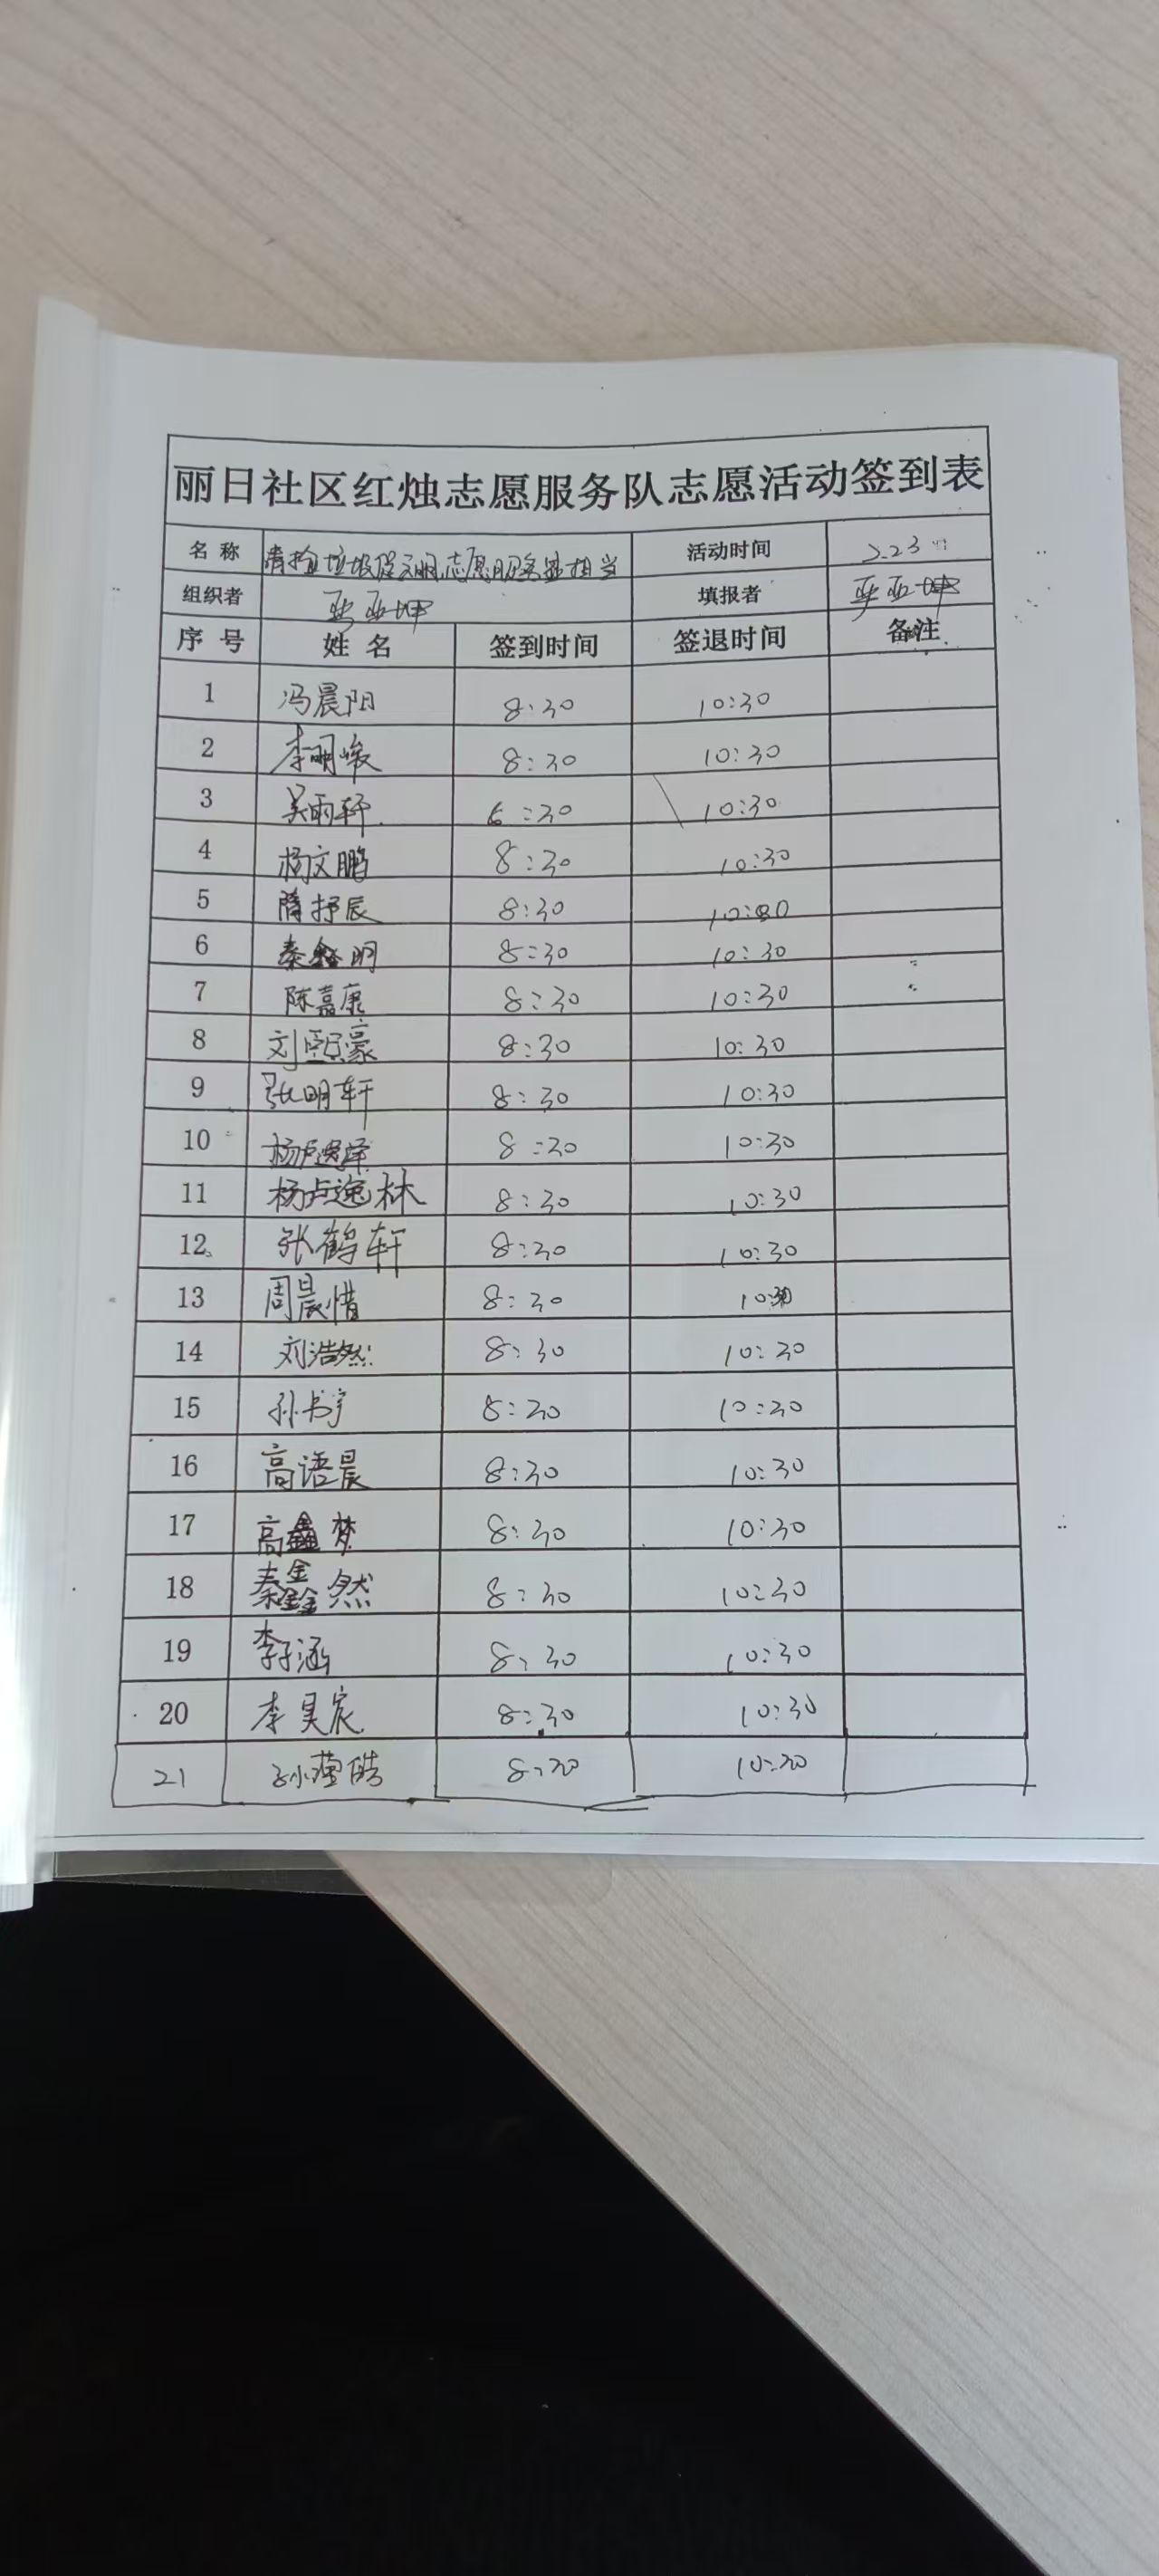 丽日社区红烛志愿服务队志愿活动签到表
名 称 清捡垃圾促文明,志愿服务显担当 活动时间 2.23
组织者 亚坤 填报者 亚坤
序 号 姓 名 签到时间 签退时间 备注
1 冯晨阳 8:30 10:30
2 李明峻 8:30 10:30
3 吴雨轩 6:30 10:30
4 杨文鹏 8:30 10:30
5 隋抒辰 8:30 10:30
6 秦鑫明 8:30 10:30
7 陈嘉康 8:30 10:30
8 刘熙豪 8:30 10:30
9 张明轩 8:30 10:30
10 杨卢逸泽 8:30 10:30
11 杨卢逸林 8:30 10:30
12 张鹤轩 8:30 10:30
13 周晨惜 8:30 10:30
14 刘浩然 8:30 10:30
15 孙书宇 8:30 10:30
16 高语晨 8:30 10:30
17 高鑫梦 8:30 10:30
18 秦鑫然 8:30 10:30
19 李子涵 8:30 10:30
20 李昊宸 8:30 10:30
21 孙莹皓 8:30 10:30